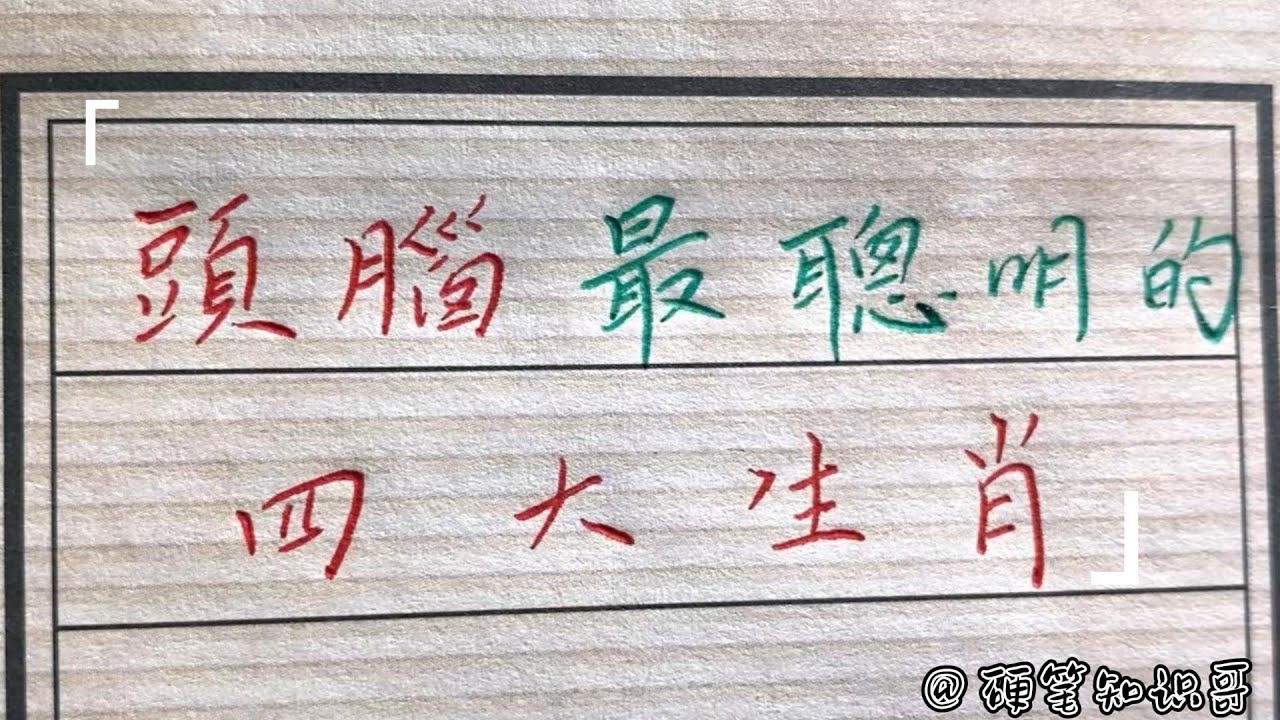 「頭腦最聰明的
四大生肖」
@硬笔知识哥